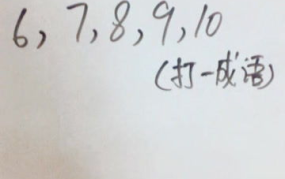 6, 7, 8, 9, 10
(打一成语)